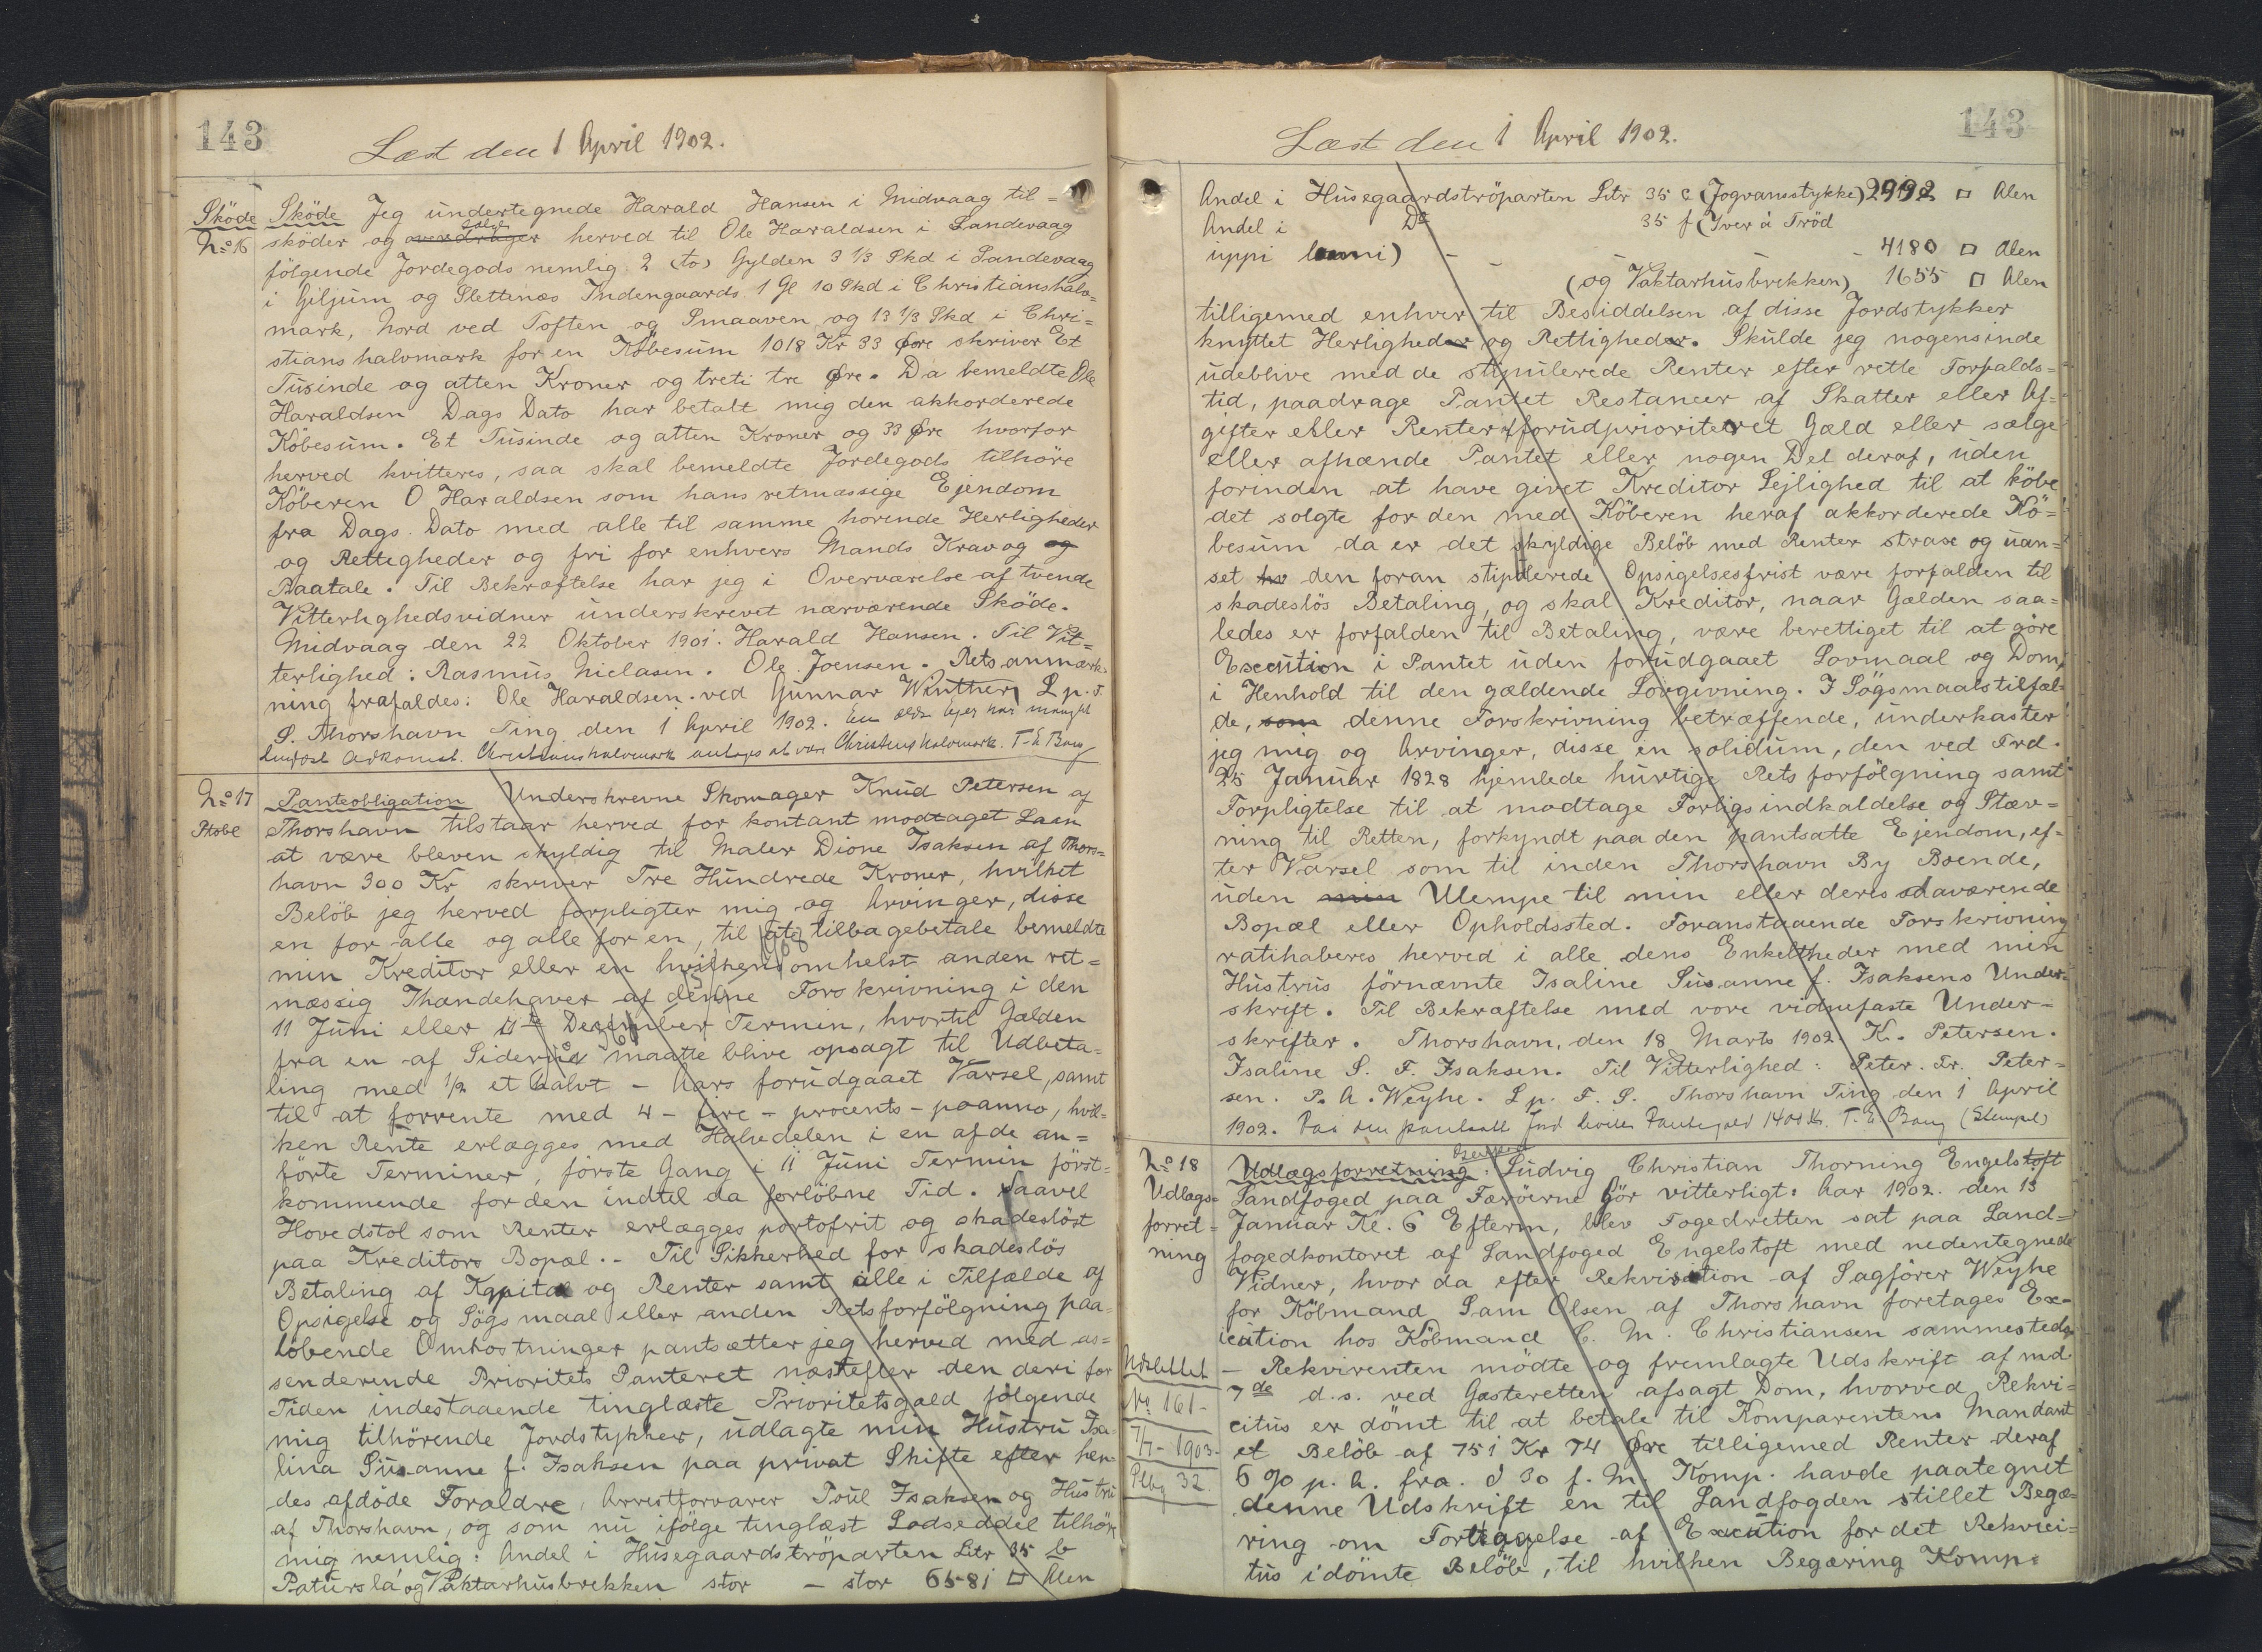 143
Læst den 1 April 1902.
Sköde
No 16
Sköde Jeg undertegnede Harald Hansen i Midvaag til=
sköder og overdrager sælger herved til Ole Haraldsen i Sandevaag
fölgende Jordegods nemlig: 2 (to) Gylden 3 1/3 Skd i Sandevaag
i Giljum og Slettenæs Indengaards 1 Gl 10 Skd i Christianshalv=
mark, Nord ved Toften og Smaaven og 13 1/3 Skd i Chri=
stianshalvmark for en Köbesum 1018 Kr 33 Øre skriver Et
Tusinde og atten Kroner og treti tre Øre. Da bemeldte Ole
Haraldsen Dags Dato har betalt mig den akkorderede
Köbesum. Et Tusinde og atten Kroner og 33 Øre hvorfor
herved kvitteres, saa skal bemeldte Jordegods tilhöre
Köberen O Haraldsen som hans retmæssige Ejendom
fra Dags Dato med alle til samme hörende Herligheder
og Rettigheder og fri for enhvers Mands Krav og og
Paatale. Til Bekræftelse har jeg i Overværelse af tvende
Vitterlighedsvidner underskrevet nærværende Sköde.
Midvaag den 22 Oktober 1901. Harald Hansen. Til Vit=
terlighed: Rasmus Niclasen. Ole Joensen. Rets anmærk=
ning frafaldes: Ole Haraldsen ved Gunnar Winther L p. F.
S. Thorshavn Ting den 1 April 1902. En ældre Ejer har manglet
tinglæst Adkomst. Christianshalvmark antages at være Christens halvmark. T. E Bang
No 17
Ptobl
Panteobligation Underskrevne Skomager Knud Petersen af
Thorshavn tilstaar herved for kontant modtaget Laan
at være bleven skyldig til Maler Dione Isaksen af Thors=
havn 300 Kr skriver Tre Hundrede Kroner, hvilket
Belöb jeg herved forpligter mig og Arvinger, disse
en for alle og alle for en, til at tilbagebetale bemeldte
min Kreditor eller en hvilkensomhelst anden ret=
mæssig Ihændehaver af denne Forskrivning i den
11 Juni eller 11te Dezember Termin, hvortil Gælden
fra en af Siderne maatte blive opsagt til Udbeta=
ling med 1/2 et halvt - Aars forudgaaet Varsel, samt
til at forrente med 4 - fire - procents - poanno, hvil=
ken Rente erlægges med Halvdelen i en af de an=
förte Terminer, förste Gang i 11 Juni Termin först=
kommende for den indtil da forlöbne Tid. Saavel
Hovedstol som Renter erlægges portofrit og skadeslöst
paa Kreditors Bopæl. - Til Sikkerhed for skadeslös
Betaling af Kapital og Renter samt alle i Tilfælde af
Opsigelse og Sögsmaal eller anden Retsforfölgning paa=
löbende Omkostninger pantsætter jeg herved med as=
senderende Prioritets Panteret næstefter den deri for
Tiden indestaaende tinglæste Prioritetsgæld fölgende
mig tilhörende Jordstykker, udlagte min Hustru Isa=
lina Susanne f. Isaksen paa privat Skifte efter hen=
des afdöde Forældre, Arrestforvarer Poul Isaksen og Hustru
af Thorshavn, og som nu ifölge tinglæst Lodseddel tilhörer
mig nemlig: Andel i Husegaardströparten Litr 35 b
Patursla og Vaktarhusbrekken stor - stor 6581 □ Alen
143
Læst den 1 April 1902.
Andel i Husegaardströparten Litr 35 c (Jogvansstykke) 2992 □ Alen
Andel i Do 35 f (Iver á Tröd
uppi lanni) - - - 4180 □ Alen
(og Vaktarhusbrekken) 1655 □ Alen
tilligemed enhver til Besiddelsen af disse Jordstykker
knyttet Herligheder og Rettigheder. Skulde jeg nogensinde
udeblive med de stipulerede Renter efter rette Forfalds=
tid, paadrage Pantet Restancer af Skatter eller Af=
gifter eller Renter af forudprioriteret Gæld eller sælge
eller afhænde Pantet eller nogen Del deraf, uden
forinden at have givet Kreditor Lejlighed til at köbe
det solgte for den med Köberen heraf akkorderede Kö=
besum da er det skyldige Belöb med Renter strax og uan=
set den foran stipulerede Opsigelsesfrist være forfalden til
skadeslös Betaling, og skal Kreditor, naar Gælden saa=
ledes er forfalden til Betaling, være berettiget til at göre
Execution i Pantet uden forudgaaet Lovmaal og Dom,
i Henhold til den gældende Lovgivning. I Sögsmaalstilfæl=
de, som denne Forskrivning betræffende, underkaster
jeg mig og Arvinger, disse en solidum, den ved Frd.
25 Januar 1828 hjemlede hurtige Rets forfölgning samt
Forpligtelse til at modtage Forligsindkaldelse og Stæv=
ning til Retten, forkyndt paa den pantsatte Ejendom, ef=
ter Varsel som til inden Thorshavn By Boende,
uden min Ulempe til min eller deres daværende
Bopæl eller Opholdssted. Foranstaaende Forskrivning
ratihaberes herved i alle dens Enkeltheder med min
Hustrus förnævnte Isaline Susanne f. Isaksens Under=
skrift. Til Bekræftelse med vore vidnefaste Under=
skrifter. Thorshavn, den 18 Marts 1902. K. Petersen.
Isaline S. F. Isaksen. Til Vitterlighed: Peter. Fr. Peter=
sen. P. A. Weyhe. L p. F. S. Thorshavn Ting den 1 April
1902. Paa den pantsatte Jord hviler Pantegæld 1400 Kr. T. E. Bang (Stempel)
No 18
Udlægs=
forret=
ning
Udlægsforretning. Ludvig Christian Thorning Engelstoft
Landfoged paa Færöerne Gör vitterligt: Aar 1902. den 13
Januar Kl. 6 Efterm, blev Fogedretten sat paa Land=
fogedkontoret af Landfoged Engelstoft med nedentegnede
Vidner, hvor da efter Rekvisition af Sagförer Weyhe
for Köbmand Sam Olsen af Thorshavn foretages Ex=
ecution hos Köbmand C. M. Christiansen sammesteds.
Udslettet
No 161-
7/7 - 1903-
Ptbg 32
- Rekvirenten mödte og fremlagte Udskrift af md
7de d. s. ved Gæsteretten afsagt Dom, hvorved Rekvi=
citus er dömt til at betale til Komparentens Mandant
et Belöb af 751 Kr 74 Øre tilligemed Renter deraf
6 % p. A. fra. d 30 f. M. Komp. havde paategnet
denne Udskrift en til Landfogden stillet Begæ=
ring om Fortagelse af Execution for det Rekvici=
tus idömte Belöb, til hvilken Begæring Komp=